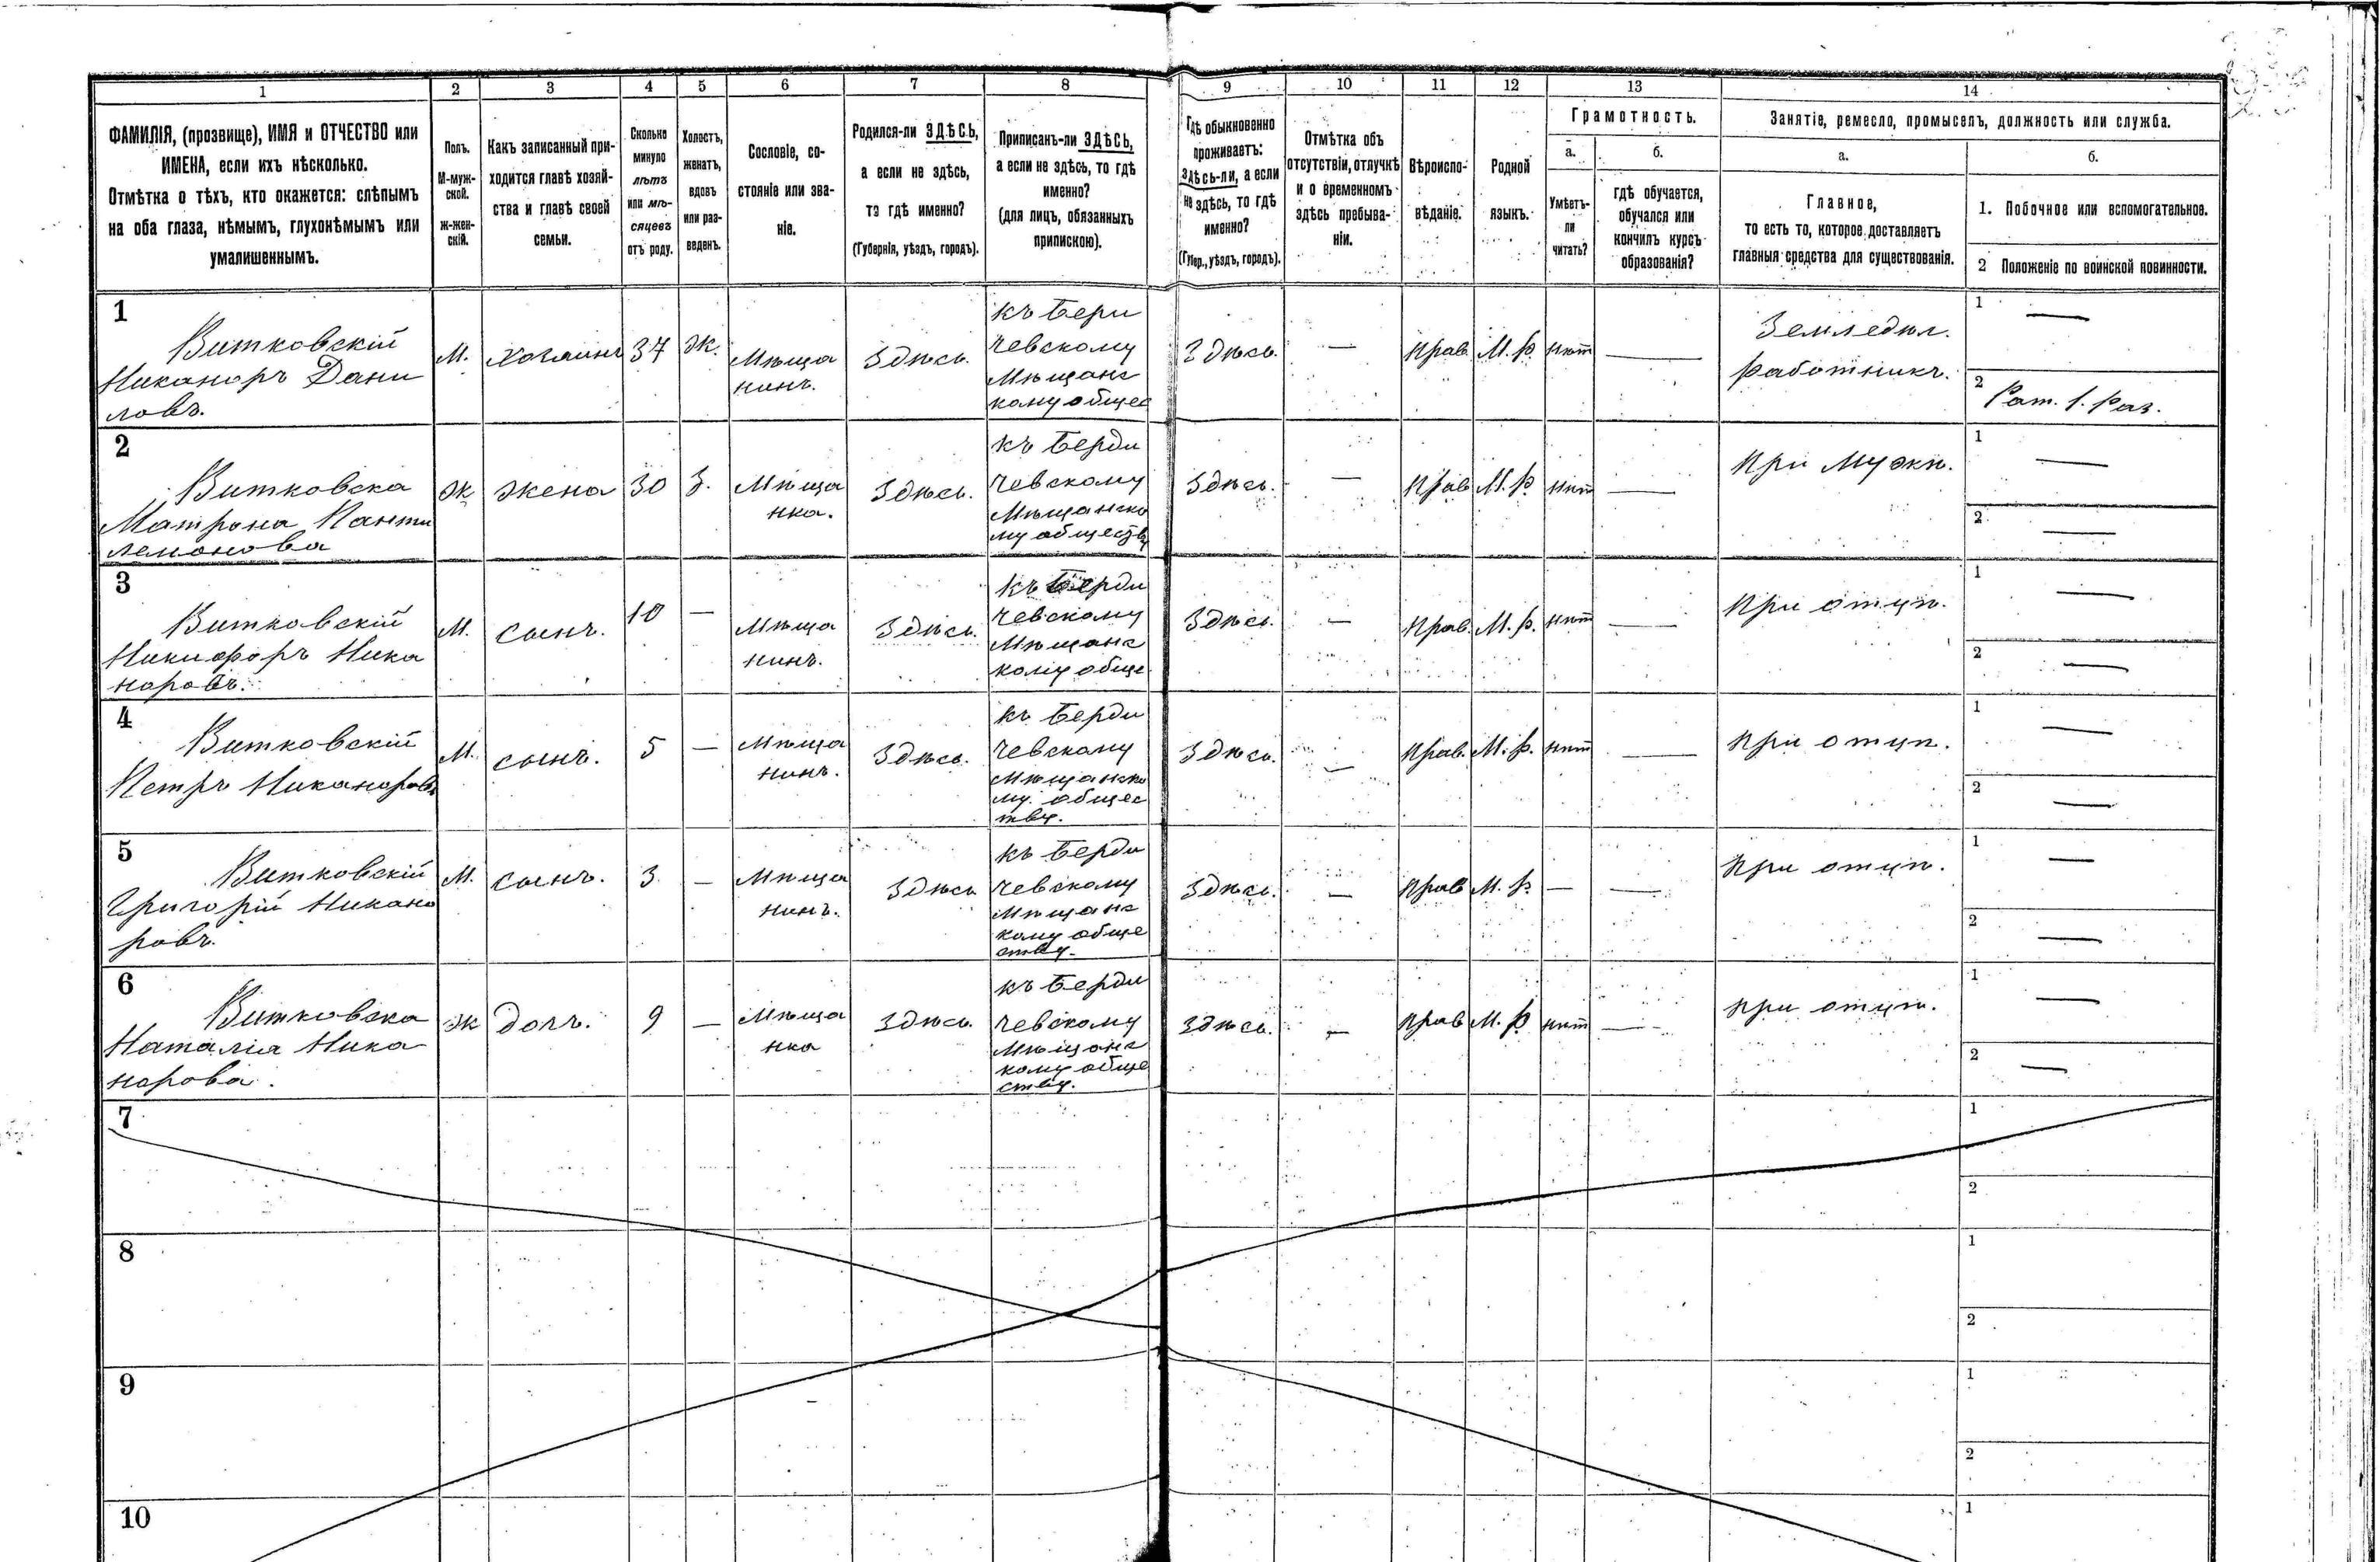 1 2 3 4 5 6 7 8 9 10 11 12 13 14
ФАМИЛІЯ, (прозвище), ИМЯ и ОТЧЕСТВО или
ИМЕНА, если ихъ нѣсколько.
Отмѣтка о тѣхъ, кто окажется: слѣпымъ
на оба глаза, нѣмымъ, глухонѣмымъ или
умалишеннымъ.
Полъ.
М-муж-
ской.
ж-жен-
скій.
Какъ записанный при-
ходится главѣ хозяй-
ства и главѣ своей
семьи.
Сколько
минуло
лѣтъ
или мѣ-
сяцевъ
отъ роду.
Холостъ,
женатъ,
вдовъ
или раз-
веденъ.
Сословіе, со-
стояніе или зва-
ніе.
Родился-ли ЗДѢСЬ,
а если не здѣсь,
то гдѣ именно?
(Губернія, уѣздъ, городъ).
Приписанъ-ли ЗДѢСЬ,
а если не здѣсь, то гдѣ
именно?
(для лицъ, обязанныхъ
припискою).
Гдѣ обыкновенно
проживаетъ:
здѣсь-ли, а если
не здѣсь, то гдѣ
именно?
(Губер., уѣздъ, городъ).
Отмѣтка объ
отсутствіи, отлучкѣ
и о временномъ
здѣсь пребыва-
ніи.
Вѣроиспо-
вѣданіе.
Родной
языкъ.
Грамотность.
а.
Умѣетъ-
ли
читать?
б.
гдѣ обучается,
обучался или
кончилъ курсъ
образованія?
Занятіе, ремесло, промыселъ, должность или служба.
а.
Главное,
то есть то, которое доставляетъ
главныя средства для существованія.
б.
1. Побочное или вспомогательное.
2 Положеніе по воинской повинности.
1
Витковскій
Никаноръ Дани
ловъ.
М.
хозяинъ
37
ж.
Мѣща
нинъ.
Здѣсь.
къ Бери
чевскому
Мѣщанс
кому общес
Здѣсь.
—
Прав.
М. р.
нѣт
—
Земледѣл.
работникъ.
1 —
2 Рат. 1. раз.
2
Витковска
Матрона Панти
лемонова
ж
жена
30
З.
Мѣща
нка.
Здѣсь.
къ Берди
чевскому
Мѣщанско
му обществу
Здѣсь.
—
Прав
М. р
нѣт
—
при мужѣ.
1 —
2 —
3
Витковскій
Никифоръ Ника
норовъ.
М.
сынъ.
10
—
Мѣща
нинъ.
Здѣсь.
къ Берди
чевскому
Мѣщанс
кому обще
Здѣсь.
—
Прав.
М. р.
нѣт
—
при отцѣ.
1 —
2 —
4
Витковскій
Петръ Никаноровъ
М.
сынъ.
5
—
Мѣща
нинъ.
Здѣсь.
къ Берди
чевскому
Мѣщанско
му. общес
тву.
Здѣсь.
—
Прав.
М. р.
нѣт
—
при отцѣ.
1 —
2 —
5
Витковскій
Григорій Никано
ровъ.
М.
сынъ.
3
—
Мѣща
нинъ.
Здѣсь
къ Берди
чевскому
Мѣщанс
кому обще
ству.
Здѣсь.
—
Прав
М. р.
—
—
при отцѣ.
1 —
2 —
6
Витковска
Наталія Ника
норова.
ж
дочъ.
9
—
Мѣща
нка
Здѣсь.
къ Берди
чевскому
Мѣщанс
кому обще
ству.
Здѣсь.
—
Прав
М. р
нѣт
—
при отцѣ.
1 —
2 —
7
1
2
8
1
2
9
1
2
10
1